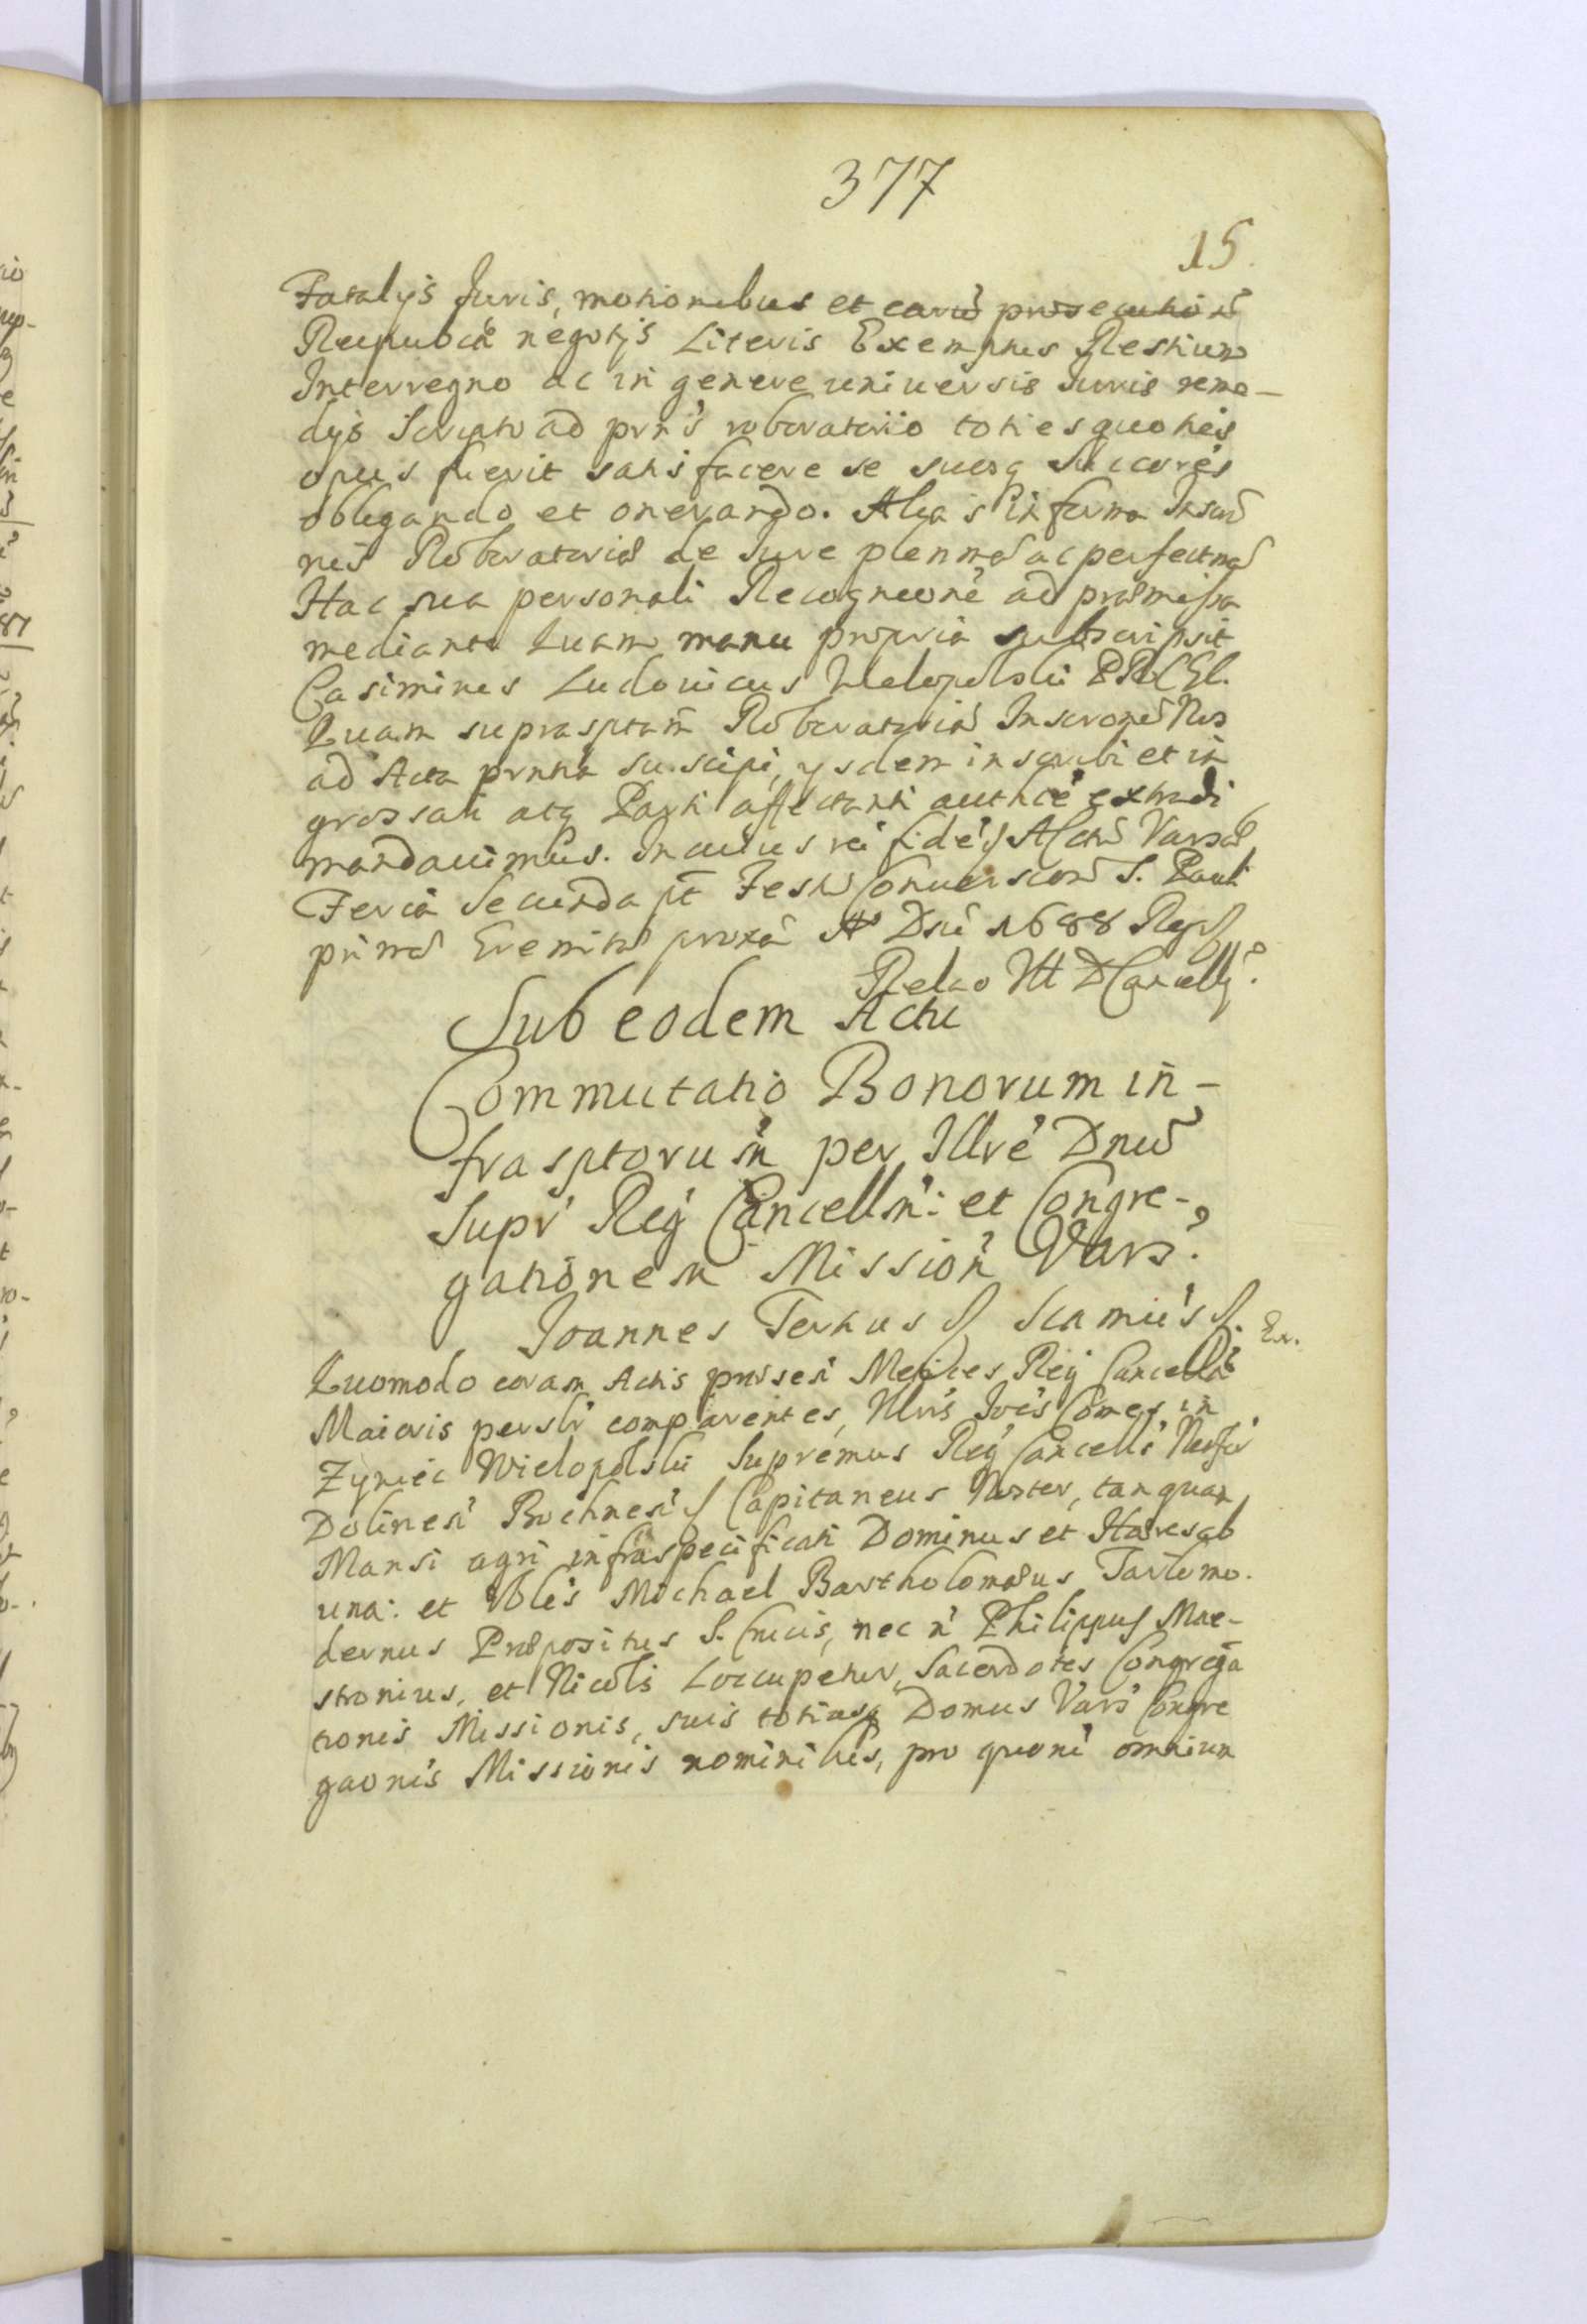 377
15.
Fatalijs Juris, motionibus et earu prosecution
Reipubca negotijs Literis Exemptus Restium
Interregno ac in genere uniuersis Juris reme-
dijs Scripto ad prns roboratorio toties quoties
opus fuerit satisfacere se suosq Succores
obligando et onerando. Alia's in forma Inscrip
nis Roboratoria de Jure plenma ac perfectma
Hac sua personali Recogneone ad præmissa
mediante Quam manu propria subscripsit
Casimirus Ludouicus Wielopolski
Quam suprasptam Roboratoria Inscrone Nos
ad Acta prntia suscipi, ysdem inscribi et in
grossari atq Parti affectanti authce extradi
mandauimus. In cuius rei fide Actu Vars
Feria Secunda pt Festu Conuersion S. Pauli
prima Eremita proxa Ao Dni 1688 Reg
Relao Cancellij.
Sub eodem Actu
Commutatio Bonorum in-
frasptorum per Illre Dnu
Supr Reg Cancellrn: et Congre-
gationem Mission Vars.
Joannes Tertius Scamus Er.
Quomodo coram Actis prnsesi Metices Reg Cancella
Maioris persli comparentes, Illris Joes Comes in
Zywiec Wielopolski Supremus Reg Cancells
Dolinesi Bochnesi Capitaneus Noster, tanquam
Mansi agri infraspecificati Dominus et Hæres ab
una: et Vbles Michael Bartholomæus Tarlo mo.
dernus Præpositus S. Crucis, nec n Philippus Mae-
stronius, et Nicols Loccupetur, Sacerdotes Congrega
tionis Missionis, suis totiusq Domus Vars Congre
gaonis Missionis nominibus, pro quoni omnium